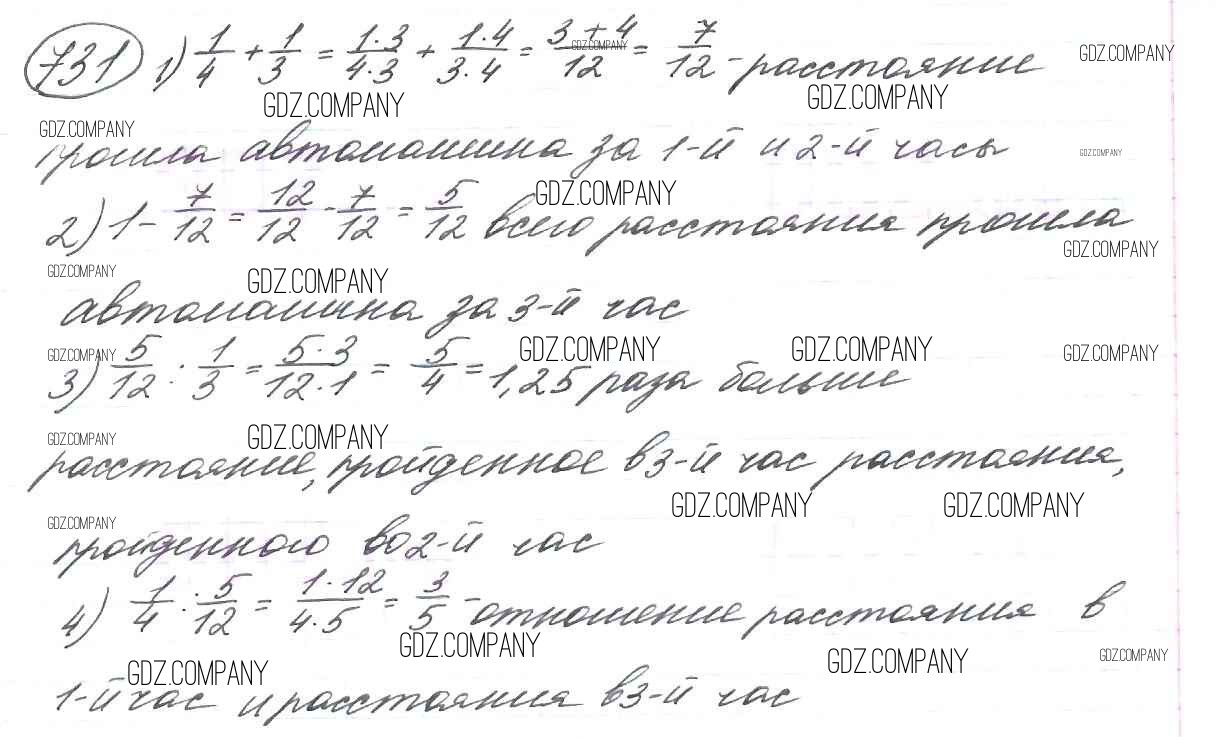 731 1) 1/4 + 1/3 = 1·3/4·3 + 1·4/3·4 = 3+4/12 = 7/12 - расстояние
GDZ.COMPANY GDZ.COMPANY GDZ.COMPANY GDZ.COMPANY
GDZ.COMPANY
прошла автомашина за 1-й и 2-й часы GDZ.COMPANY
GDZ.COMPANY
2) 1 - 7/12 = 12/12 - 7/12 = 5/12 всего расстояния прошла
GDZ.COMPANY GDZ.COMPANY GDZ.COMPANY
автомашина за 3-й час
GDZ.COMPANY GDZ.COMPANY GDZ.COMPANY GDZ.COMPANY
3) 5/12 : 1/3 = 5·3/12·1 = 5/4 = 1,25 раза больше
GDZ.COMPANY GDZ.COMPANY
расстояние, пройденное в 3-й час расстояния,
GDZ.COMPANY GDZ.COMPANY GDZ.COMPANY
пройденного во 2-й час
4) 1/4 : 5/12 = 1·12/4·5 = 3/5 - отношение расстояния в
GDZ.COMPANY GDZ.COMPANY GDZ.COMPANY GDZ.COMPANY
1-й час и расстояния в 3-й час